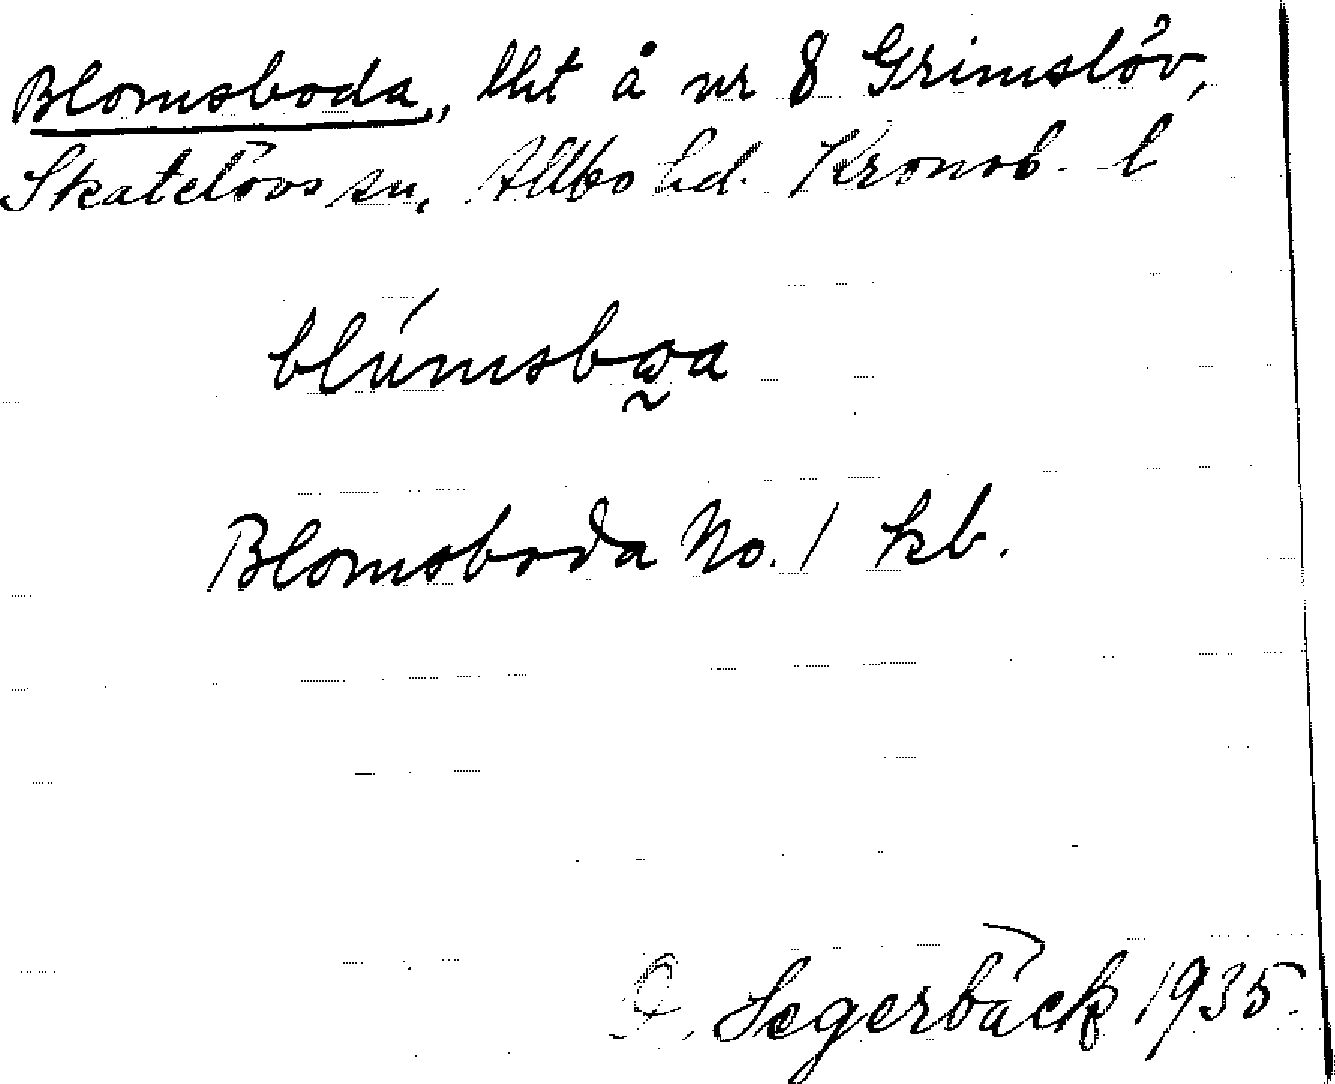 Blomsboda, lht å nr 8 Grimslöv,
Skatelövs sn, Allbo hd. Kronob. l
blúmsbωa
Blomsboda No. 1 kb.
Segerbäck 1935.